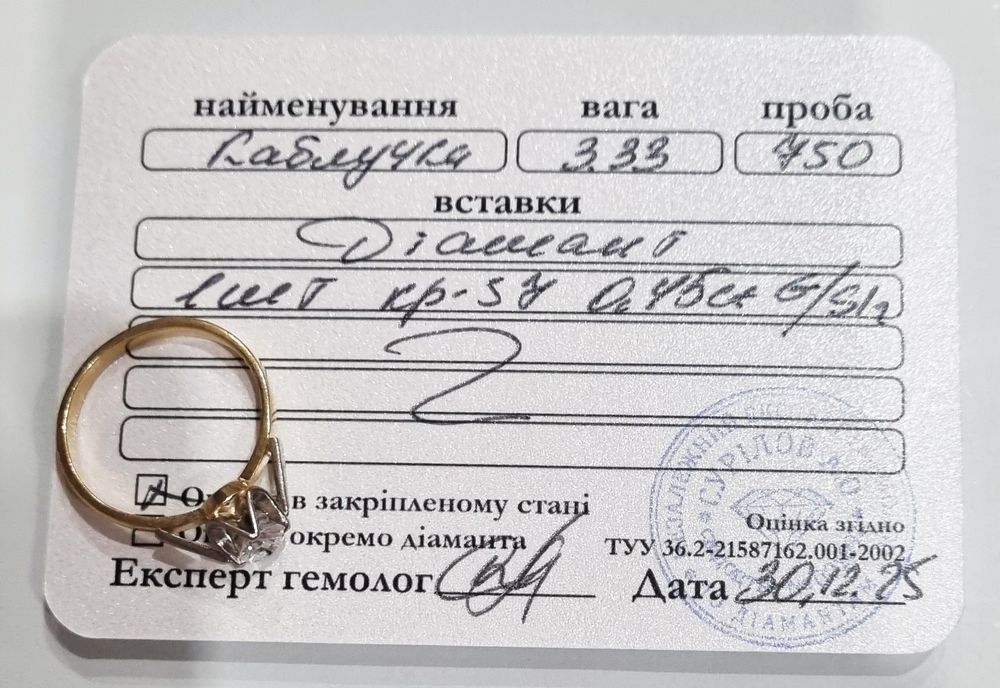 найменування вага проба
Каблучка 3.33 750
вставки
Діамант
1 шт кр-57 0,45ct G/SI2
в закріпленому стані
окремо діаманта
Оцінка згідно
ТУУ 36.2-21587162.001-2002
Експерт гемолог Дата 30.12.25
СУРІЛОВ
ДІАМАНТ